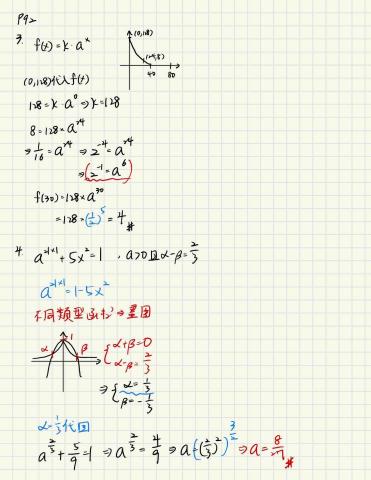 P92
3. f(x)=k·a^x
(0,128)
(24,8)
40 80
(0,128)代入f(x)
128=k·a^0 ⇒k=128
8=128×a^24
⇒ 1/16=a^24 ⇒ 2^-4=a^24
⇒(2^-1=a^6)
f(30)=128×a^30
=128×(1/2)^5=4#
4. a^2|x|+5x^2=1 , a>0且α-β=2/3
a^2|x|=1-5x^2
不同類型函數⇒畫圖
α 1 β
{α+β=0
α-β=2/3
⇒{α=1/3
β=-1/3
α=1/3代回
a^2/3+5/9=1 ⇒a^2/3=4/9 ⇒a=((2/3)^2)^3/2 ⇒a=8/27#